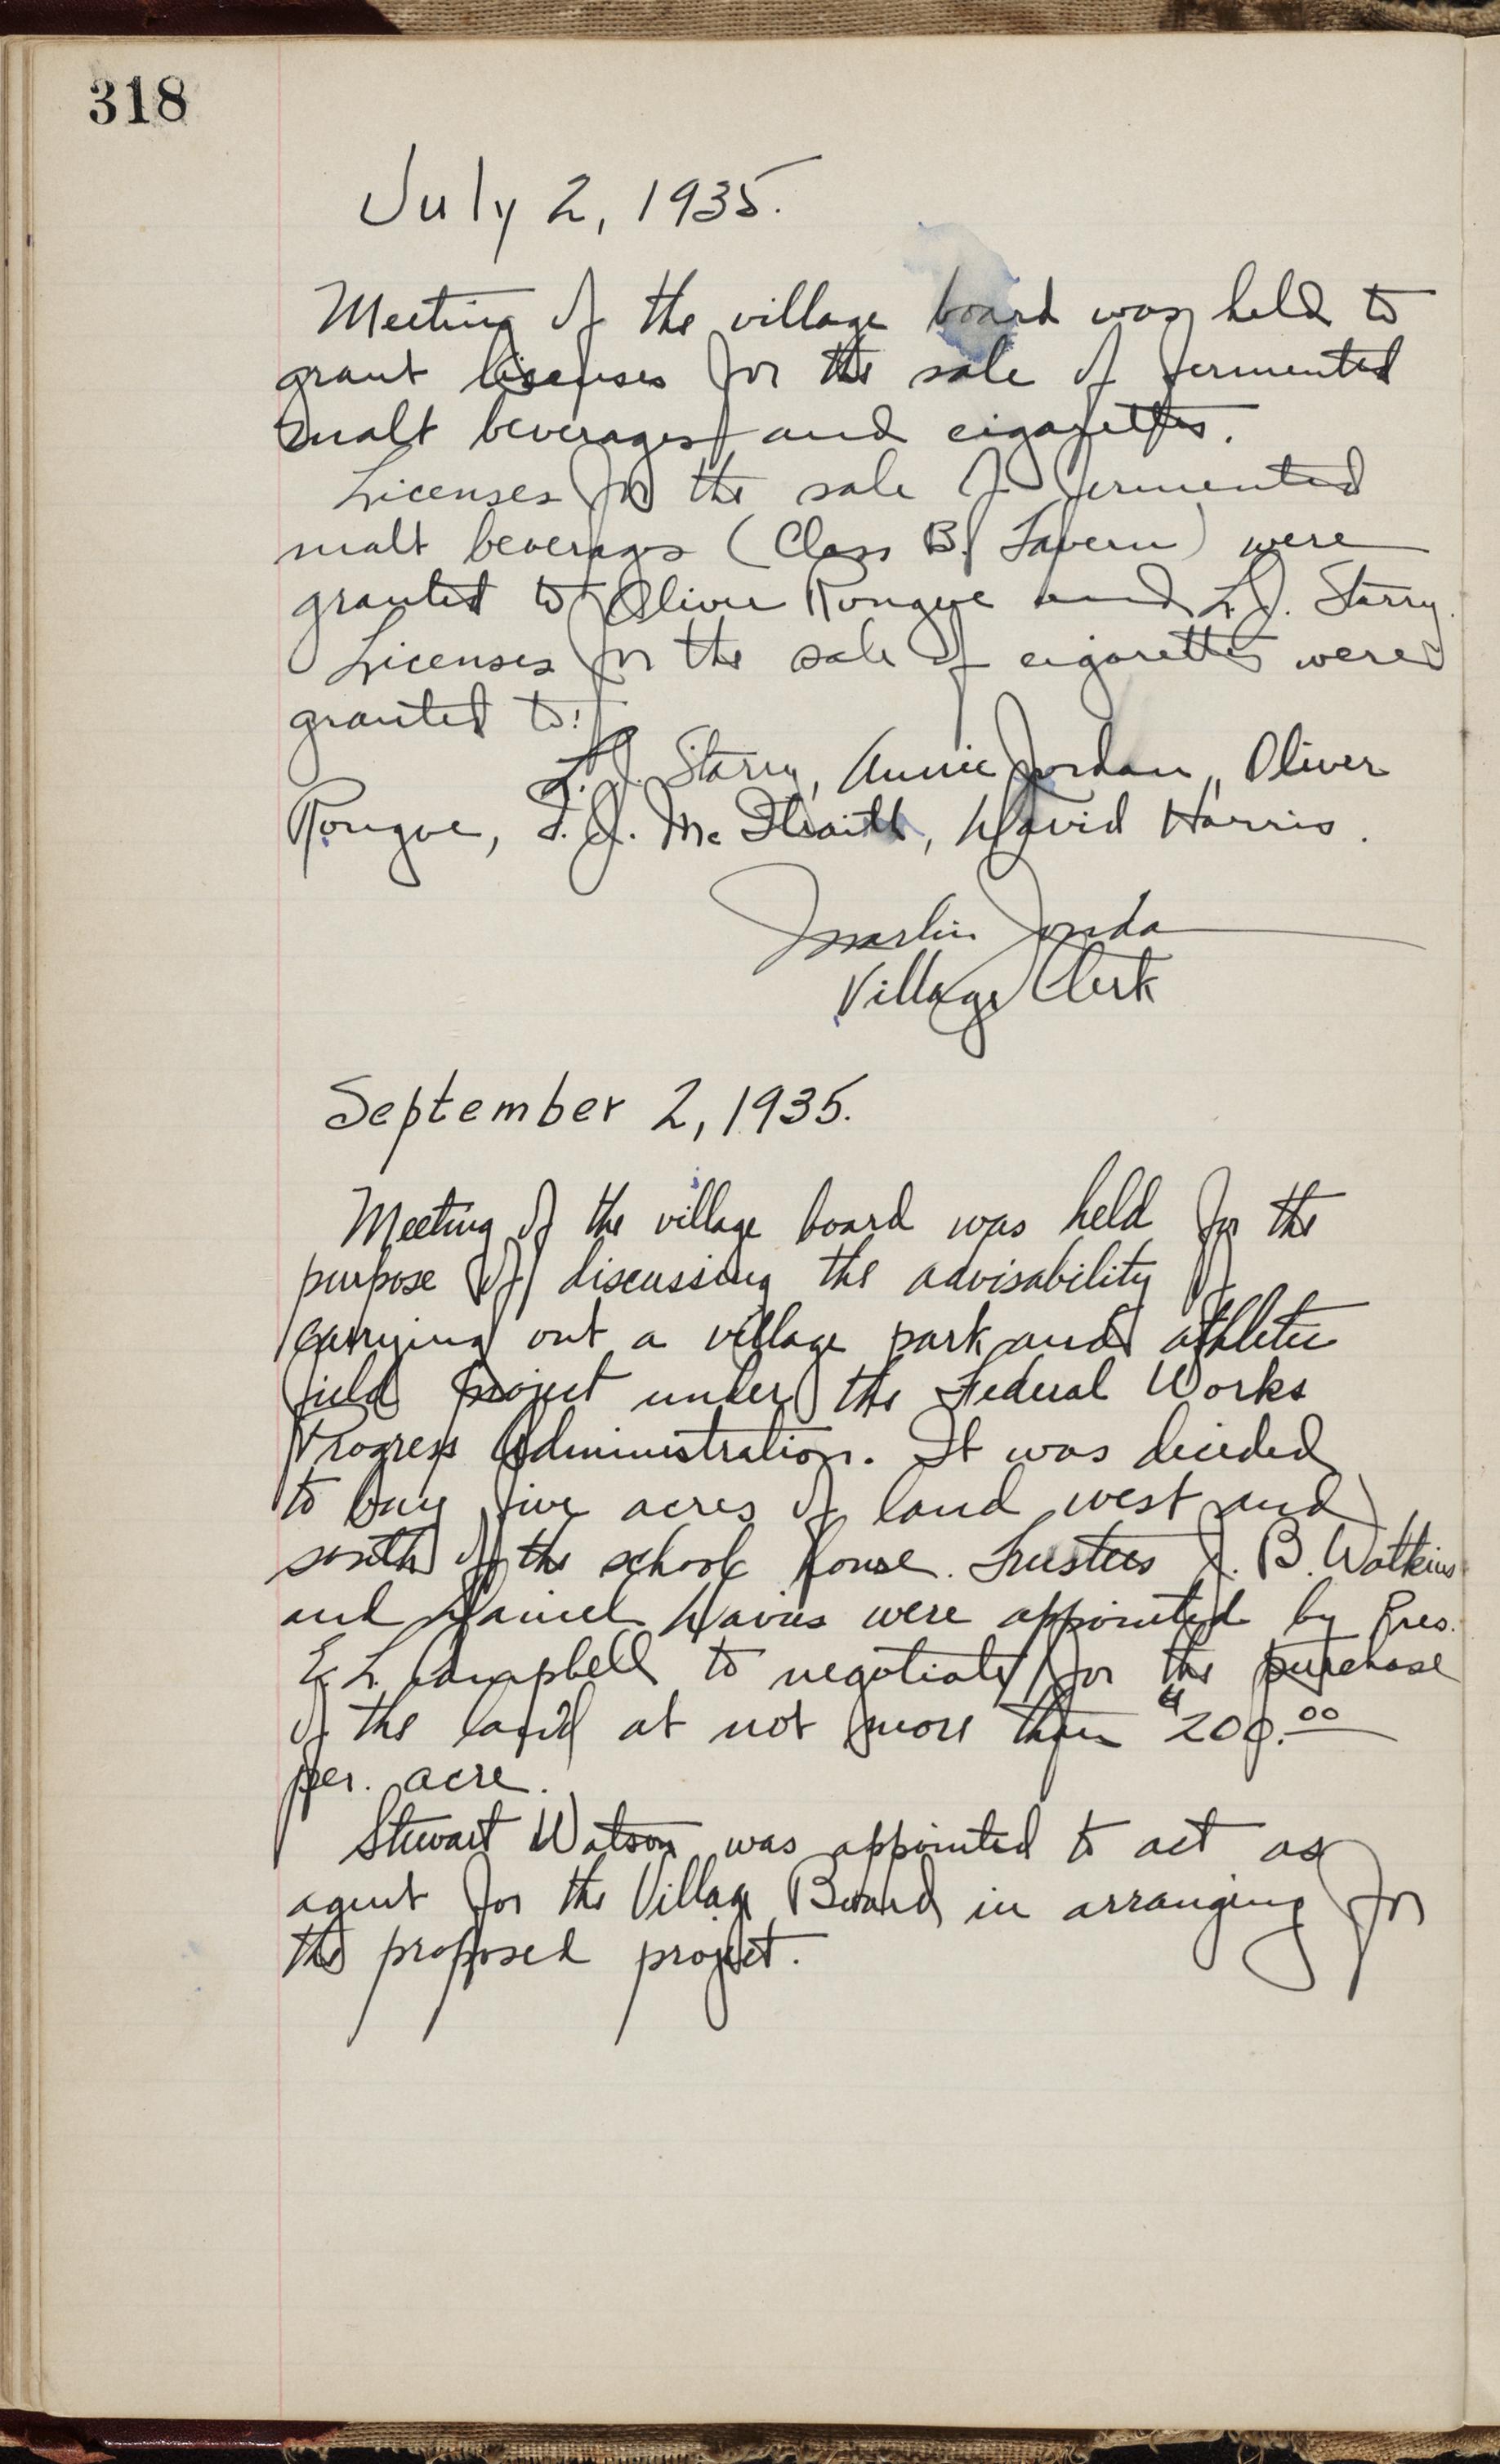 318
July 2, 1935.
Meeting of the village board was held to
grant licenses for the sale of fermented
malt beverages and cigarettes.
Licenses for the sale of fermented
malt beverages (Class B. Tavern) were
granted to Oliver Rongve and L.J. Starry.
Licenses for the sale of cigarettes were
granted to:
L.J. Starry, Annie Jordan, Oliver
Rongve, F.J. Mc Ilraith, David Harris.
Marlin
Village Clerk
September 2, 1935.
Meeting of the village board was held for the
purpose of discussing the advisability of
carrying out a village park and athletic
field project under the Federal Works
Progress Administration. It was decided
to buy five acres of land west and
south of the school house. Trustees J. B. Watkins
and Daniel Davies were appointed by Pres.
E. L. Campbell to negotiate for the purchase
of the land at not more than $200.00
per. acre.
Stewart Watson was appointed to act as
agent for the Village Board in arranging for
the proposed project.